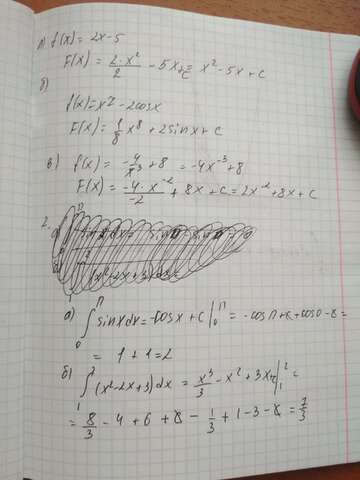 а) f(x) = 2x - 5
F(x) = 2·x²/2 - 5x + c = x² - 5x + c
б)
f(x) = x⁷ - 2cosx
F(x) = 1/8 x⁸ + 2sinx + c
в) f(x) = -4/x³ + 8 = -4x⁻³ + 8
F(x) = -4·x⁻²/-2 + 8x + c = 2x⁻² + 8x + c
2.
а) ∫₀^π sinxdx = -cosx + c |₀^π = -cosπ + c + cos0 - c =
= 1 + 1 = 2
б) ∫₁² (x² - 2x + 3)dx = x³/3 - x² + 3x + c |₁² =
= 8/3 - 4 + 6 + c - 1/3 + 1 - 3 - c = 7/3